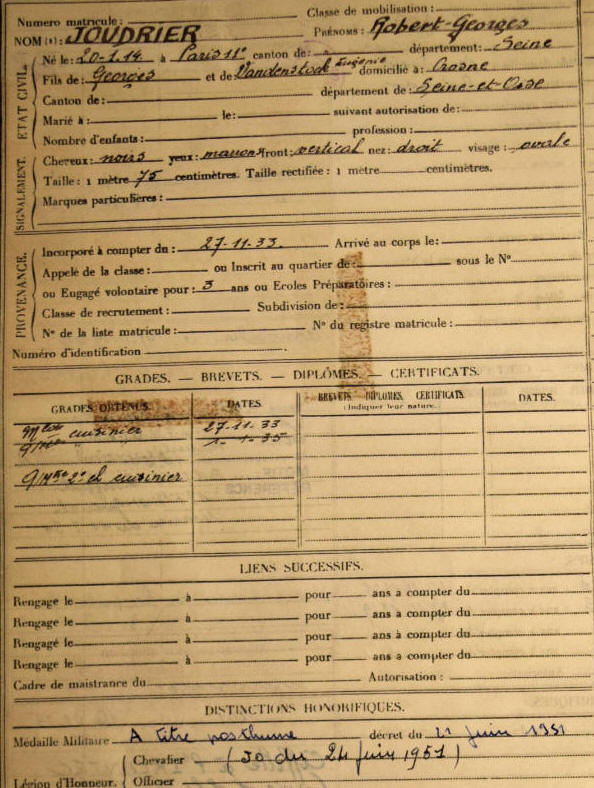 Numero matricule : Classe de mobilisation :
NOM (s) : JOUDRIER PRÉNOMS : Robert-Georges
ETAT CIVIL.
Né le : 20-1.14 à Paris 11e canton de : département : Seine
Fils de : Georges et de Vandenstock Eugénie domicilié à : Crosne
Canton de : département de : Seine-et-Oise
Marié à : le : suivant autorisation de :
Nombre d'enfants : profession :
SIGNALEMENT.
Cheveux : noirs yeux : marrons front : vertical nez : droit visage : ovale
Taille : 1 mètre 75 centimètres. Taille rectifiée : 1 mètre centimètres.
Marques particulières :
PROVENANCE.
Incorporé à compter du : 27-11-33. Arrivé au corps le :
Appelé de la classe : ou Inscrit au quartier de : sous le No
ou Engagé volontaire pour : 3 ans ou Ecoles Préparatoires :
Classe de recrutement : Subdivision de :
No de la liste matricule : No du registre matricule :
Numéro d'identification
GRADES. — BREVETS. — DIPLÔMES. — CERTIFICATS.
GRADES OBTENUS. DATES BREVETS, DIPLÔMES, CERTIFICATS DATES.
(Indiquer leur nature).
cuisinier 27-11-33
1-1-35
2e cl cuisinier
LIENS SUCCESSIFS.
Rengagé le à pour ans a compter du
Rengagé le à pour ans a compter du
Rengagé le à pour ans a compter du
Rengage le à pour ans a compter du
Cadre de maistrance du Autorisation :
DISTINCTIONS HONORIFIQUES.
Médaille Militaire A titre posthume décret du juin 1951
Chevalier (JO du 24 juin 1951)
Légion d'Honneur. Officier